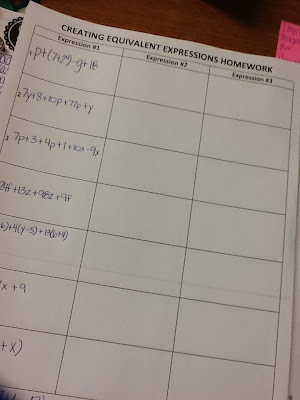 CREATING EQUIVALENT EXPRESSIONS HOMEWORK
Expression #1 Expression #2 Expression #3
1. p+(7+2⁴)-g+18
2. 7y+8+10p+77p+y
3. 7p+3+4p+1+10x-9x
24f+13z+98z+9f
6)+4(y-5)+13(6+4)
x+9
+x)